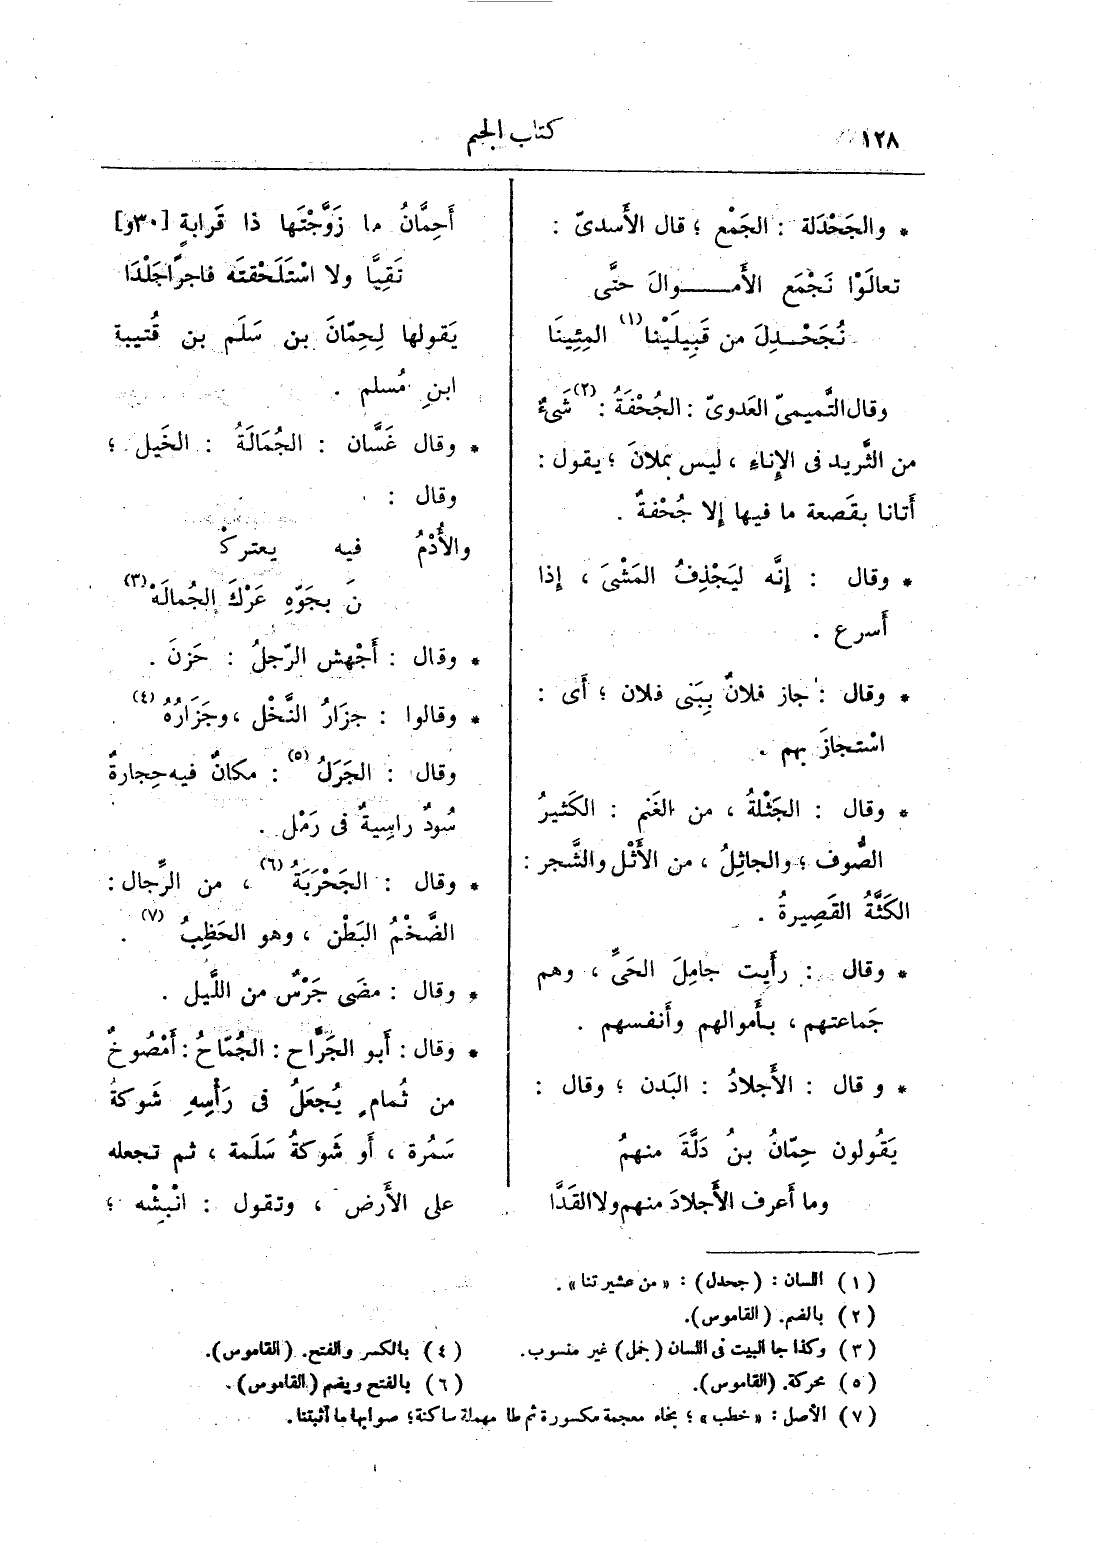 ١٢٨
كتاب الجيم
* والجَحْدَلة : الجَمْع ؛ قال الأَسدىّ :
تعالَوْا نَجْمَع الأَمـــــوالَ حتَّى
نُجَحْـدِلَ من قَبِيلَيْنا (١) المِئِينَا
وقال التَّميمىّ العَدوىّ : الجُحْفَةُ (٢) : شَىءٌ
من الثَّريد فى الإِناءِ ، ليس بملانَ ؛ يقول :
أَتانا بقَصعة ما فيها إِلا جُحْفةٌ .
* وقال : إِنَّه ليَجْذِفُ المَشْىَ ، إِذا
أَسرع .
* وقال : جاز فلانٌ بِبَنى فلان ؛ أَى :
اسْتجازَ بهم .
* وقال : الجَثْلةُ ، من الغَنم : الكَثيرُ
الصُّوف ؛ والجاثِلُ ، من الأَثْل والشَّجر :
الكَثَّةُ القَصِيرةُ .
* وقال : رأَيت جامِلَ الحَىِّ ، وهم
جَماعتهم ، بأَموالهم وأَنفسهم .
* و قال : الأَجلادُ : البَدن ؛ وقال :
يَقُولون حِمّانُ بنُ دَلَّةَ منهمُ
وما أَعرف الأَجلادَ منهم ولا القَدَّا
أَحِمَّانُ ما زَوَّجْتَها ذا قَرابةٍ [٣٠و]
تَقِيًّا ولا اسْتَلَحْقتَه فاجرًا جَلْدَا
يَقولها لِحِمّانَ بن سَلَم بن قُتيبة
ابنِ مُسلم .
* وقال غَسَّان : الجُمَالَةُ : الخَيل ؛
وقال :
والأُدْمُ فيه يعتركْ
نَ بجَوّهِ عَرْكَ الجُمالَهْ (٣)
* وقال : أَجْهش الرّجلُ : حَزنَ .
* وقالوا : جزَارُ النَّخْل ، وجَزَارُهُ (٤)
وقال : الجَرَلُ (٥) : مكانٌ فيه حِجارةٌ
سُودٌ راسِيةٌ فى رَمْل .
* وقال : الجَحْرَبَةُ (٦) ، من الرِّجال :
الضَّخْمُ البَطْن ، وهو الحَظِبُ (٧) .
* وقال : مضَى جَرْسٌ من اللَّيل .
* وقال : أَبو الجَرَّاح : الجُمّاحُ : أُمْصُوخٌ
من ثُمام يُجعَلُ فى رَأْسِهِ شَوكةُ
سَمُرة ، أَو شَوكةُ سَلَمة ، ثم تجعله
على الأَرض ، وتقول : انْبِشْه ؛
(١) اللسان : (جحدل) : « من عشيرتنا » .
(٢) بالضم . (القاموس).
(٣) وكذا جا البيت فى اللسان (جمل) غير منسوب .
(٤) بالكسر والفتح . (القاموس).
(٥) محركة . (القاموس).
(٦) بالفتح ويضم (القاموس) .
(٧) الأصل : « خطب » ؛ بخاء معجمة مكسورة ثم طا مهملة ساكنة ؛ صوابها ما أثبتنا .